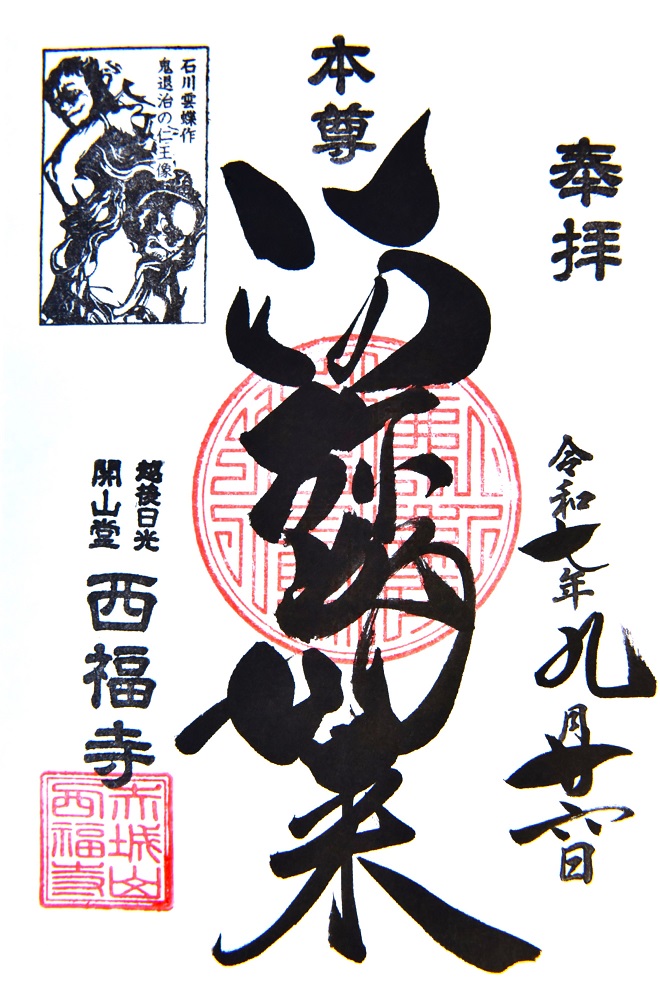 奉拝
令和七年九月廿六日
本尊
如来
石川雲蝶作
鬼退治の仁王像
越後日光
開山堂
西福寺
赤城山
西福寺